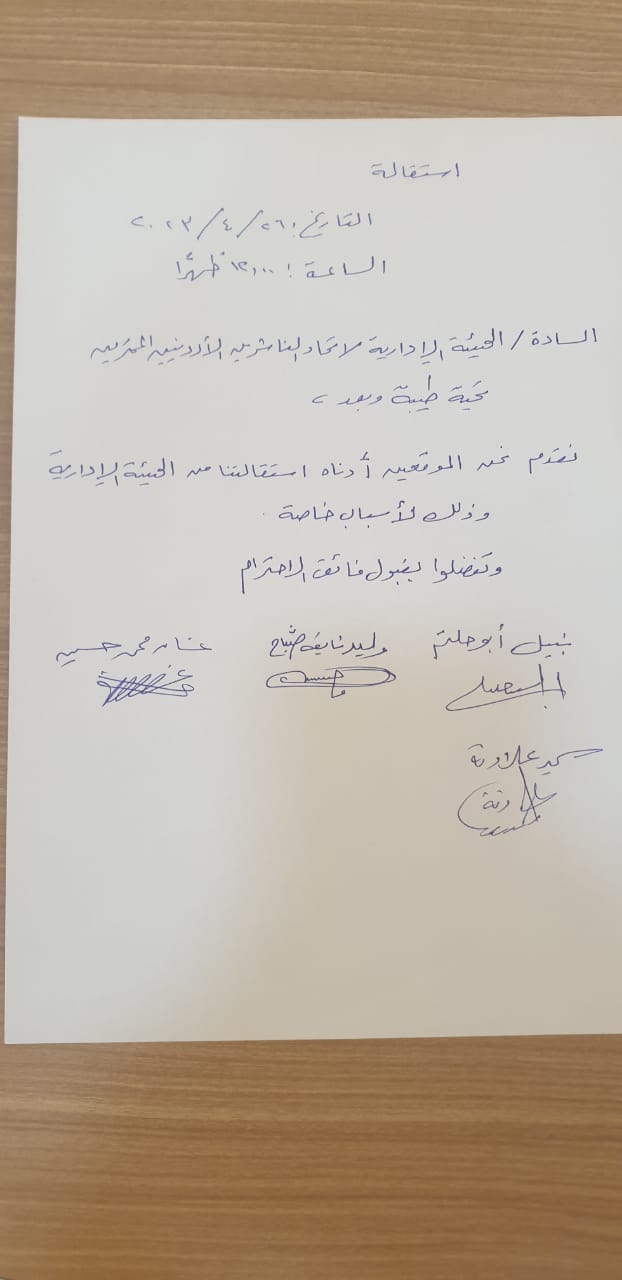 استقالة
التاريخ: ٢٦/٤/٢٠٢٣
الساعة: ١٢,٠٠ ظهرًا
السادة / الهيئة الإدارية لاتحاد الناشرين الأردنيين المحترمين
تحية طيبة وبعد ،
نقدم نحن الموقعين أدناه استقالتنا من الهيئة الإدارية
وذلك لأسباب خاصة .
وتفضلوا بقبول فائق الاحترام
نبيل أبو حلتم وليد نايف صبّاح غسان محمد حسين
سمير علاونة